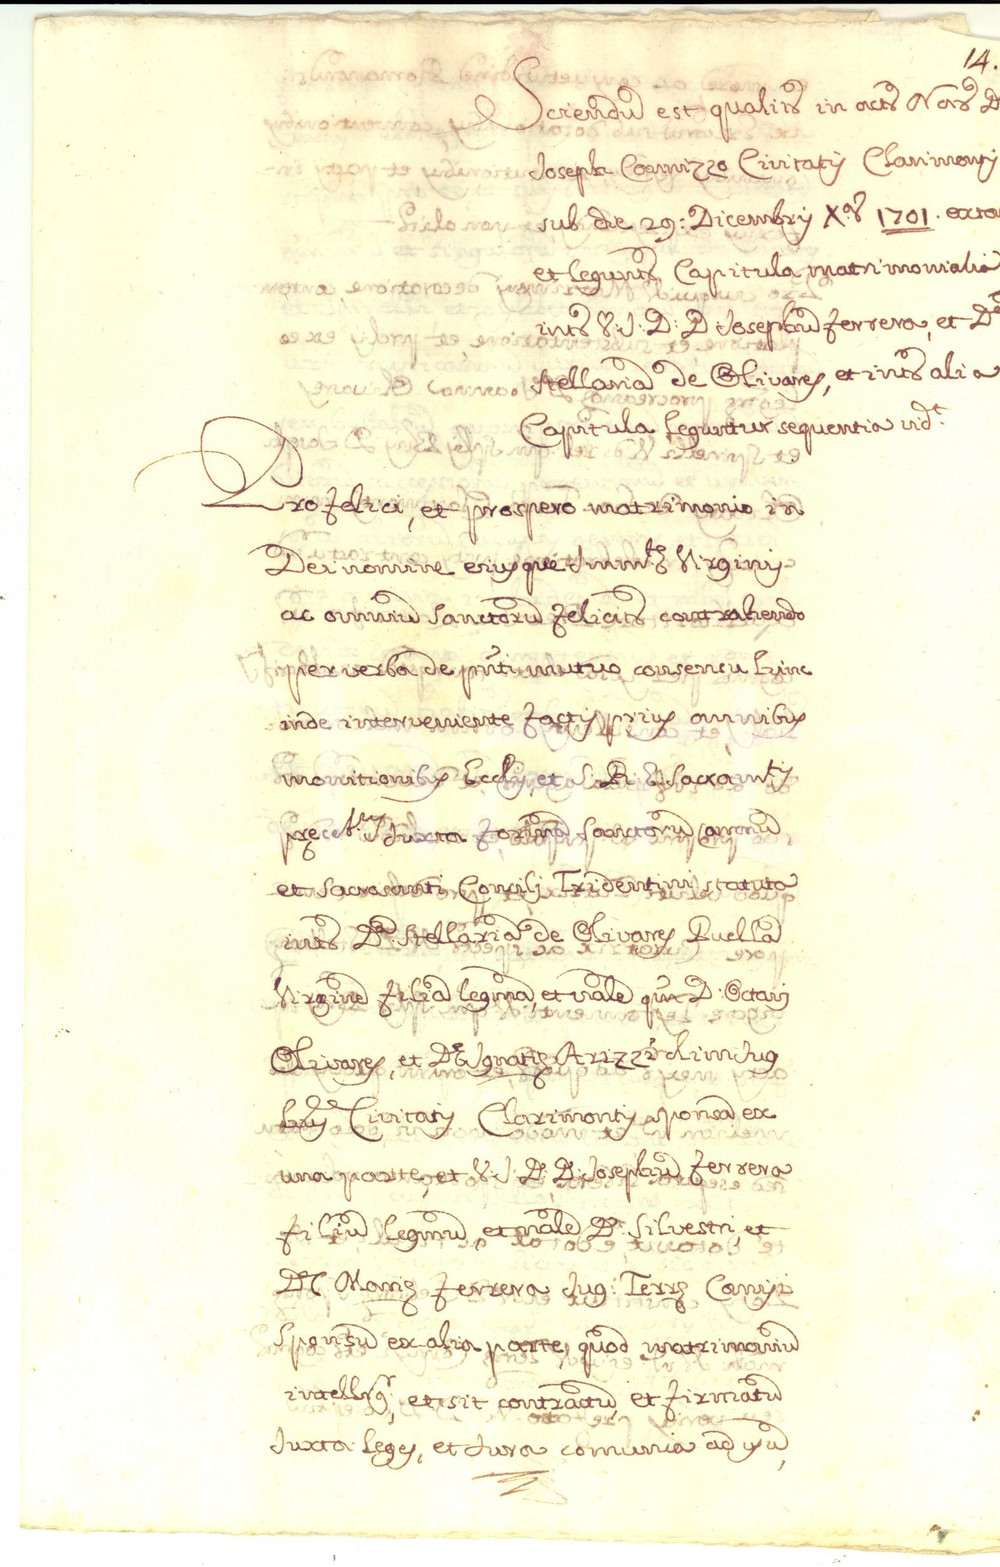 14.
Sciendũ est qualitr̃ in actis Notr̃ D
Joseph Cannizzo Civitatis Clarimontis
sub die 29: Dicembris X.e 1701. extan
et leguntr̃ Capitula matrimonialia
intr̃ V. J: D: D Josephũ Ferrera, et D.am
Stellariã de Olivares, et intr̃ alia
Capitula leguntur sequentia vid.t
Pro felici, et prospero matrimonio in
Dei nomine eiusque Imm.te Virginis
ac omniũ Sanctorũ felicitr̃ contrahendo
per verba de pñti mutuo consensu hinc
inde interveniente factis prius omnibus
monitionibus Ecclis, et S. R. E. Sacram.tis
precebtis Juxta formã Sanctorũ Canonũ
et sacrosanti Concilij Tridentini statuta
intr̃ D.am Stellariã de Olivares Puellã
Virginẽ filiã legimã, et nãlẽ qm̃ D. Octavij
Olivares, et D.e Ignatię Arizzi olim Jug
hus Civitatis Clarimontis sponsã ex
una parte, et V. J. D. D. Josephũ Ferrera
filiũ legimũ, et nãlẽ D. Silvestri, et
D.e Marię Ferrera Jug: Terrę Comisi
Sponsũ ex alia parte, quod matrimoniũ
intelligr, et sit contractũ, et firmatũ
Juxta leges, et Jura comunia ad usũ,